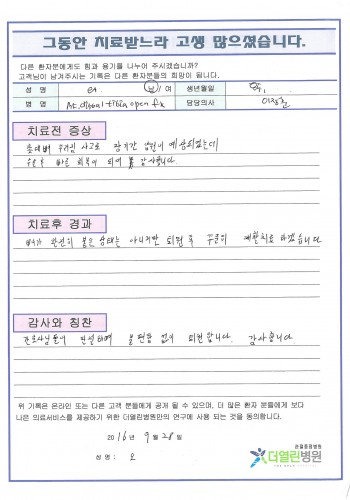 그동안 치료받느라 고생 많으셨습니다.
다른 환자분에게도 힘과 용기를 나누어 주시겠습니까?
고객님이 남겨주시는 기록은 다른 환자분들의 희망이 됩니다.
성 명 남/여 생년월일
병 명 At. distal tibia open fx 담당의사
치료전 증상
사고로 장기간 입원이 예상되었는데
빠른 회복이 되어 감사합니다.
치료후 경과
뼈가 완전히 붙은 상태는 아니지만 퇴원 후 꾸준히 재활치료 하겠습니다
감사와 칭찬
간호사님들이 친절하여 불편함 없이 퇴원합니다. 감사합니다.
위 기록은 온라인 또는 다른 고객 분들에게 공개 될 수 있으며, 더 많은 환자 분들에게 보다
나은 의료서비스를 제공하기 위한 더열린병원만의 연구에 사용 되는 것을 동의합니다.
2016년 9월 28일
성 명 : 오
관절중점병원
더열린병원